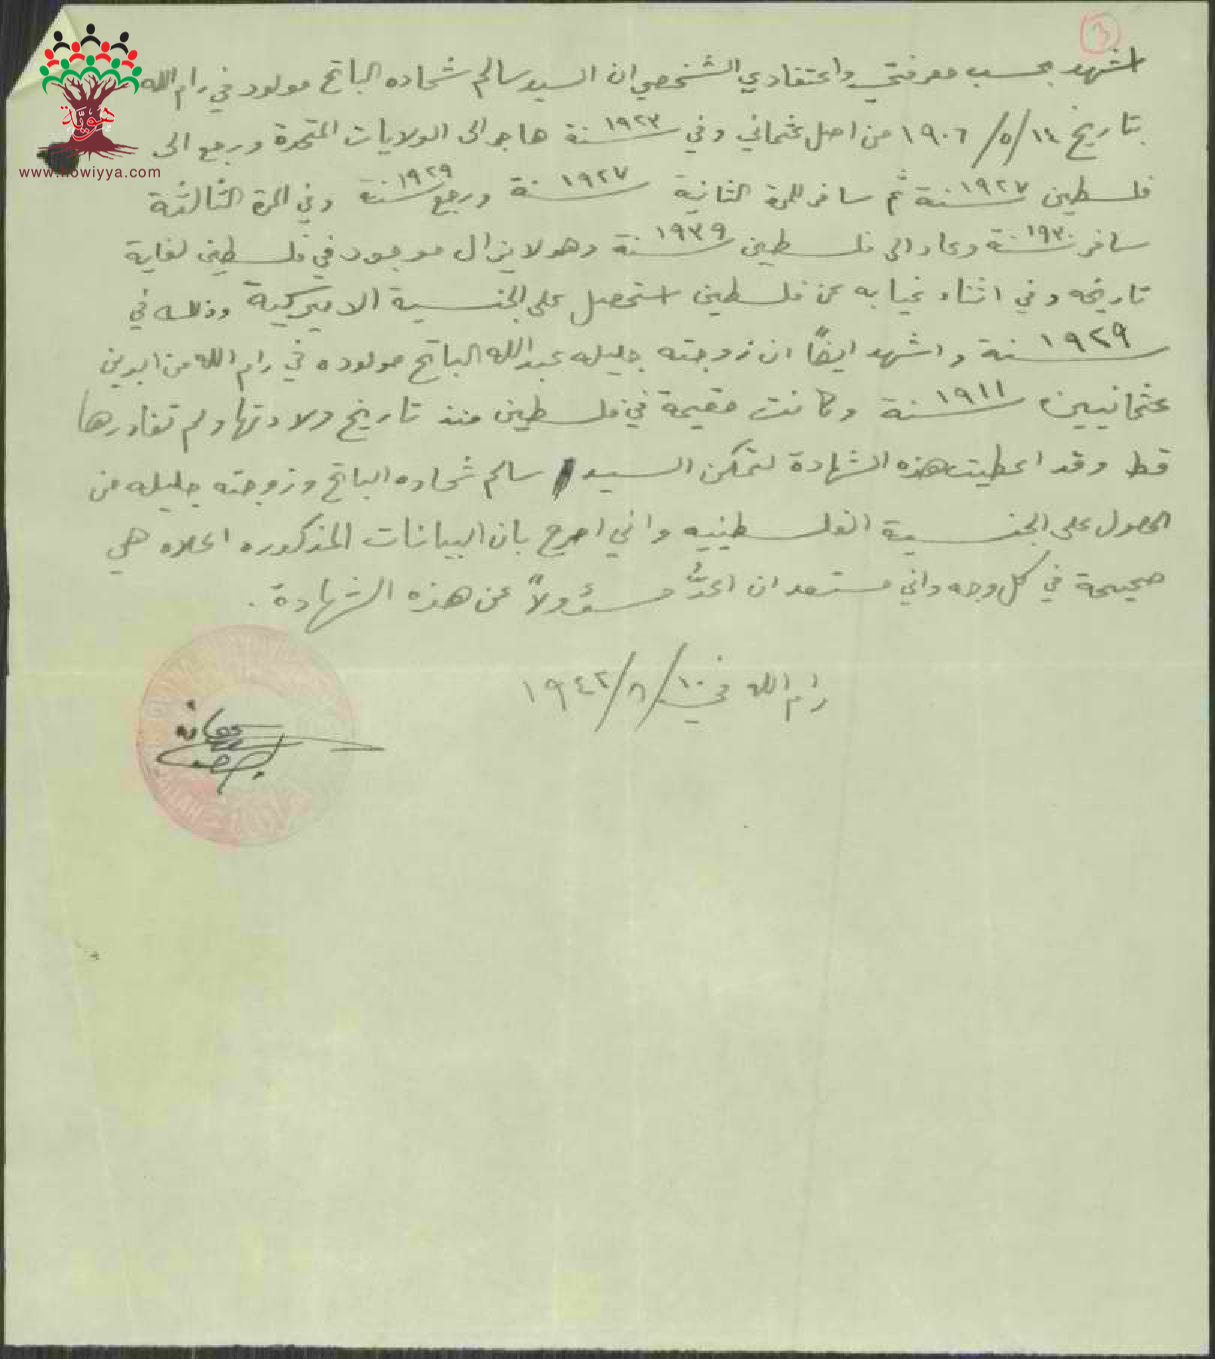 ٣
اشهد بحسب معرفتي واعتقادي الشخصي ان السيد سالم شحاده الباتح مولود في رام الله
بتاريخ ١٤/٥/١٩٠٦ من اصل عثماني وفي سنة ١٩٢٣ هاجر الى الولايات المتحدة ورجع الى
فلسطين سنة ١٩٢٧ ثم سافر للمرة الثانية سنة ١٩٢٧ ورجع سنة ١٩٢٩ وفي المرة الثالثة
سافر سنة ١٩٣٠ وعاد الى فلسطين سنة ١٩٣٩ وهو لا يزال موجود في فلسطين لغاية
تاريخه وفي اثناء غيابه عن فلسطين استحصل على الجنسية الاميركية وذلك في
سنة ١٩٢٩ واشهد ايضاً ان زوجته جليله عبدالله الباتح مولوده في رام الله من ابوين
عثمانيين سنة ١٩١١ وكانت مقيمة في فلسطين منذ تاريخ ولادتها ولم تغادرها
قط وقد اعطيت هذه الشهادة لتمكن السيد سالم شحاده الباتح وزوجته جليله من
الحصول على الجنسية الفلسطينيه واني اصرح بان البيانات المذكوره اعلاه هي
صحيحة في كل وجه واني مستعد ان اعدُّ مسؤولاً عن هذه الشهادة.
رام الله في ١٠/٨/١٩٤٢
هوية
www.howiyya.com